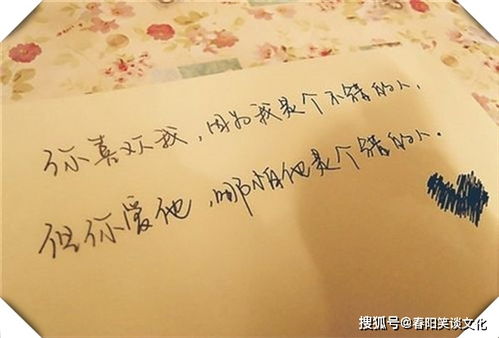 你喜欢我，因为我是个不错的人，
但你爱他，哪怕他是个错的人。
搜狐号@春阳笑谈文化